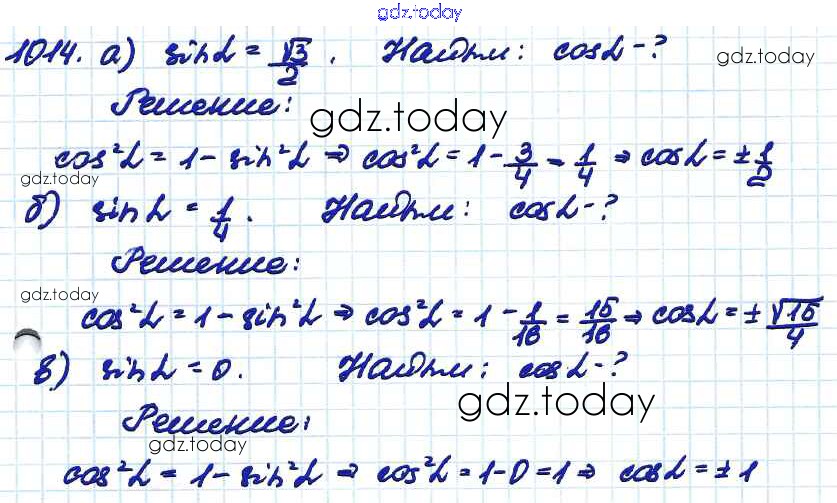 gdz.today
1014. а) sin α = √3/2 . Найти: cos α - ?
gdz.today
Решение:
gdz.today
cos²α = 1 - sin²α ⇒ cos²α = 1 - 3/4 = 1/4 ⇒ cos α = ± 1/2
gdz.today
б) sin α = 1/4 . Найти: cos α - ?
Решение:
gdz.today
cos²α = 1 - sin²α ⇒ cos²α = 1 - 1/16 = 15/16 ⇒ cos α = ± √15/4
в) sin α = 0. Найти: cos α - ?
gdz.today
Решение:
gdz.today
cos²α = 1 - sin²α ⇒ cos²α = 1 - 0 = 1 ⇒ cos α = ± 1